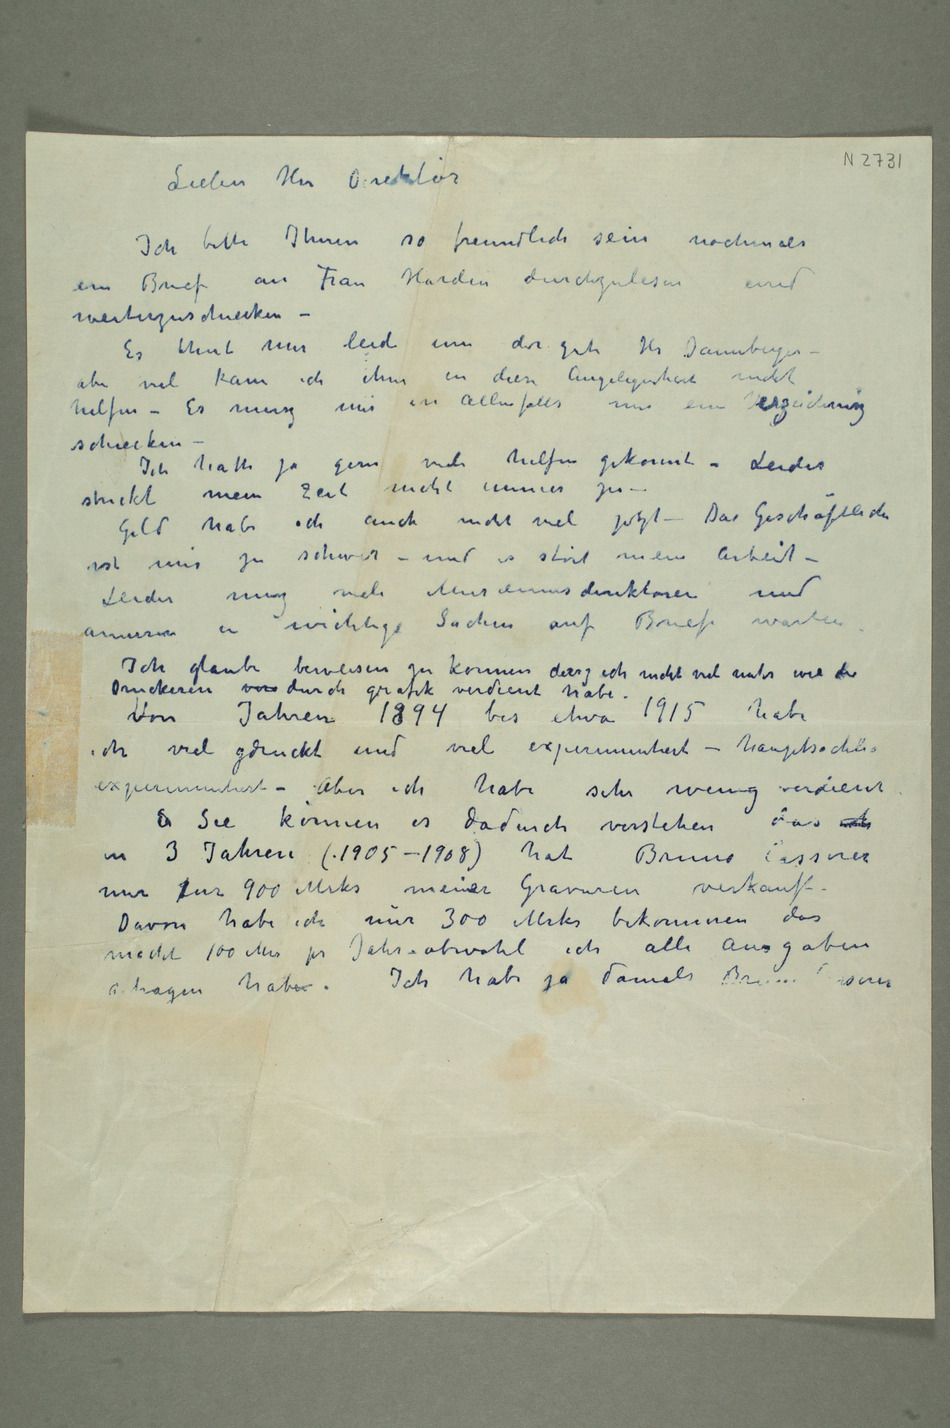 N 2731
Lieber Herr Direktør
Ich bitte Ihnen so freundlich sein nochmals
ein Brief an Frau Harden durchzulesen und
weiterzuschicken –
Es thut mir leid um der gute Hr Dannberger –
aber viel kann ich ihm in diese Angelegenheit nicht
helfen – Es muss mir in allenfalls nur ein Verzeichniss
schicken –
Ich hätte ja gern viele helfen gekonnt – Leider
streckt mein Zeit nicht immer zu –
Geld habe ich auch nicht viel jetzt – Das Geschäftliche
ist mir zu schwer – und es stört meine Arbeit –
Leider muss viele Museumsdirektoren und
anderen in wichtige Sachen auf Briefe warten.
Ich glaube beweisen zu können dass ich nicht viel mehr wie die
Druckeren durch grafik verdient habe.
Von Jahren 1894 bis etwa 1915 habe
ich viel gedruckt und viel experimentiert – hauptsächlich
experimentiert – Aber ich habe sehr wenig verdient.
Sie können es dadurch verstehen das
in 3 Jahren (1905–1908) hat Bruno Cassirer
nur für 900 Mrks meiner Gravuren verkauft –
Davon habe ich nur 300 Mrks bekommen das
macht 100 Mrs pr Jahr – obwohl ich alle Ausgaben
getragen habe. Ich habe ja damals Bruno Cassirer